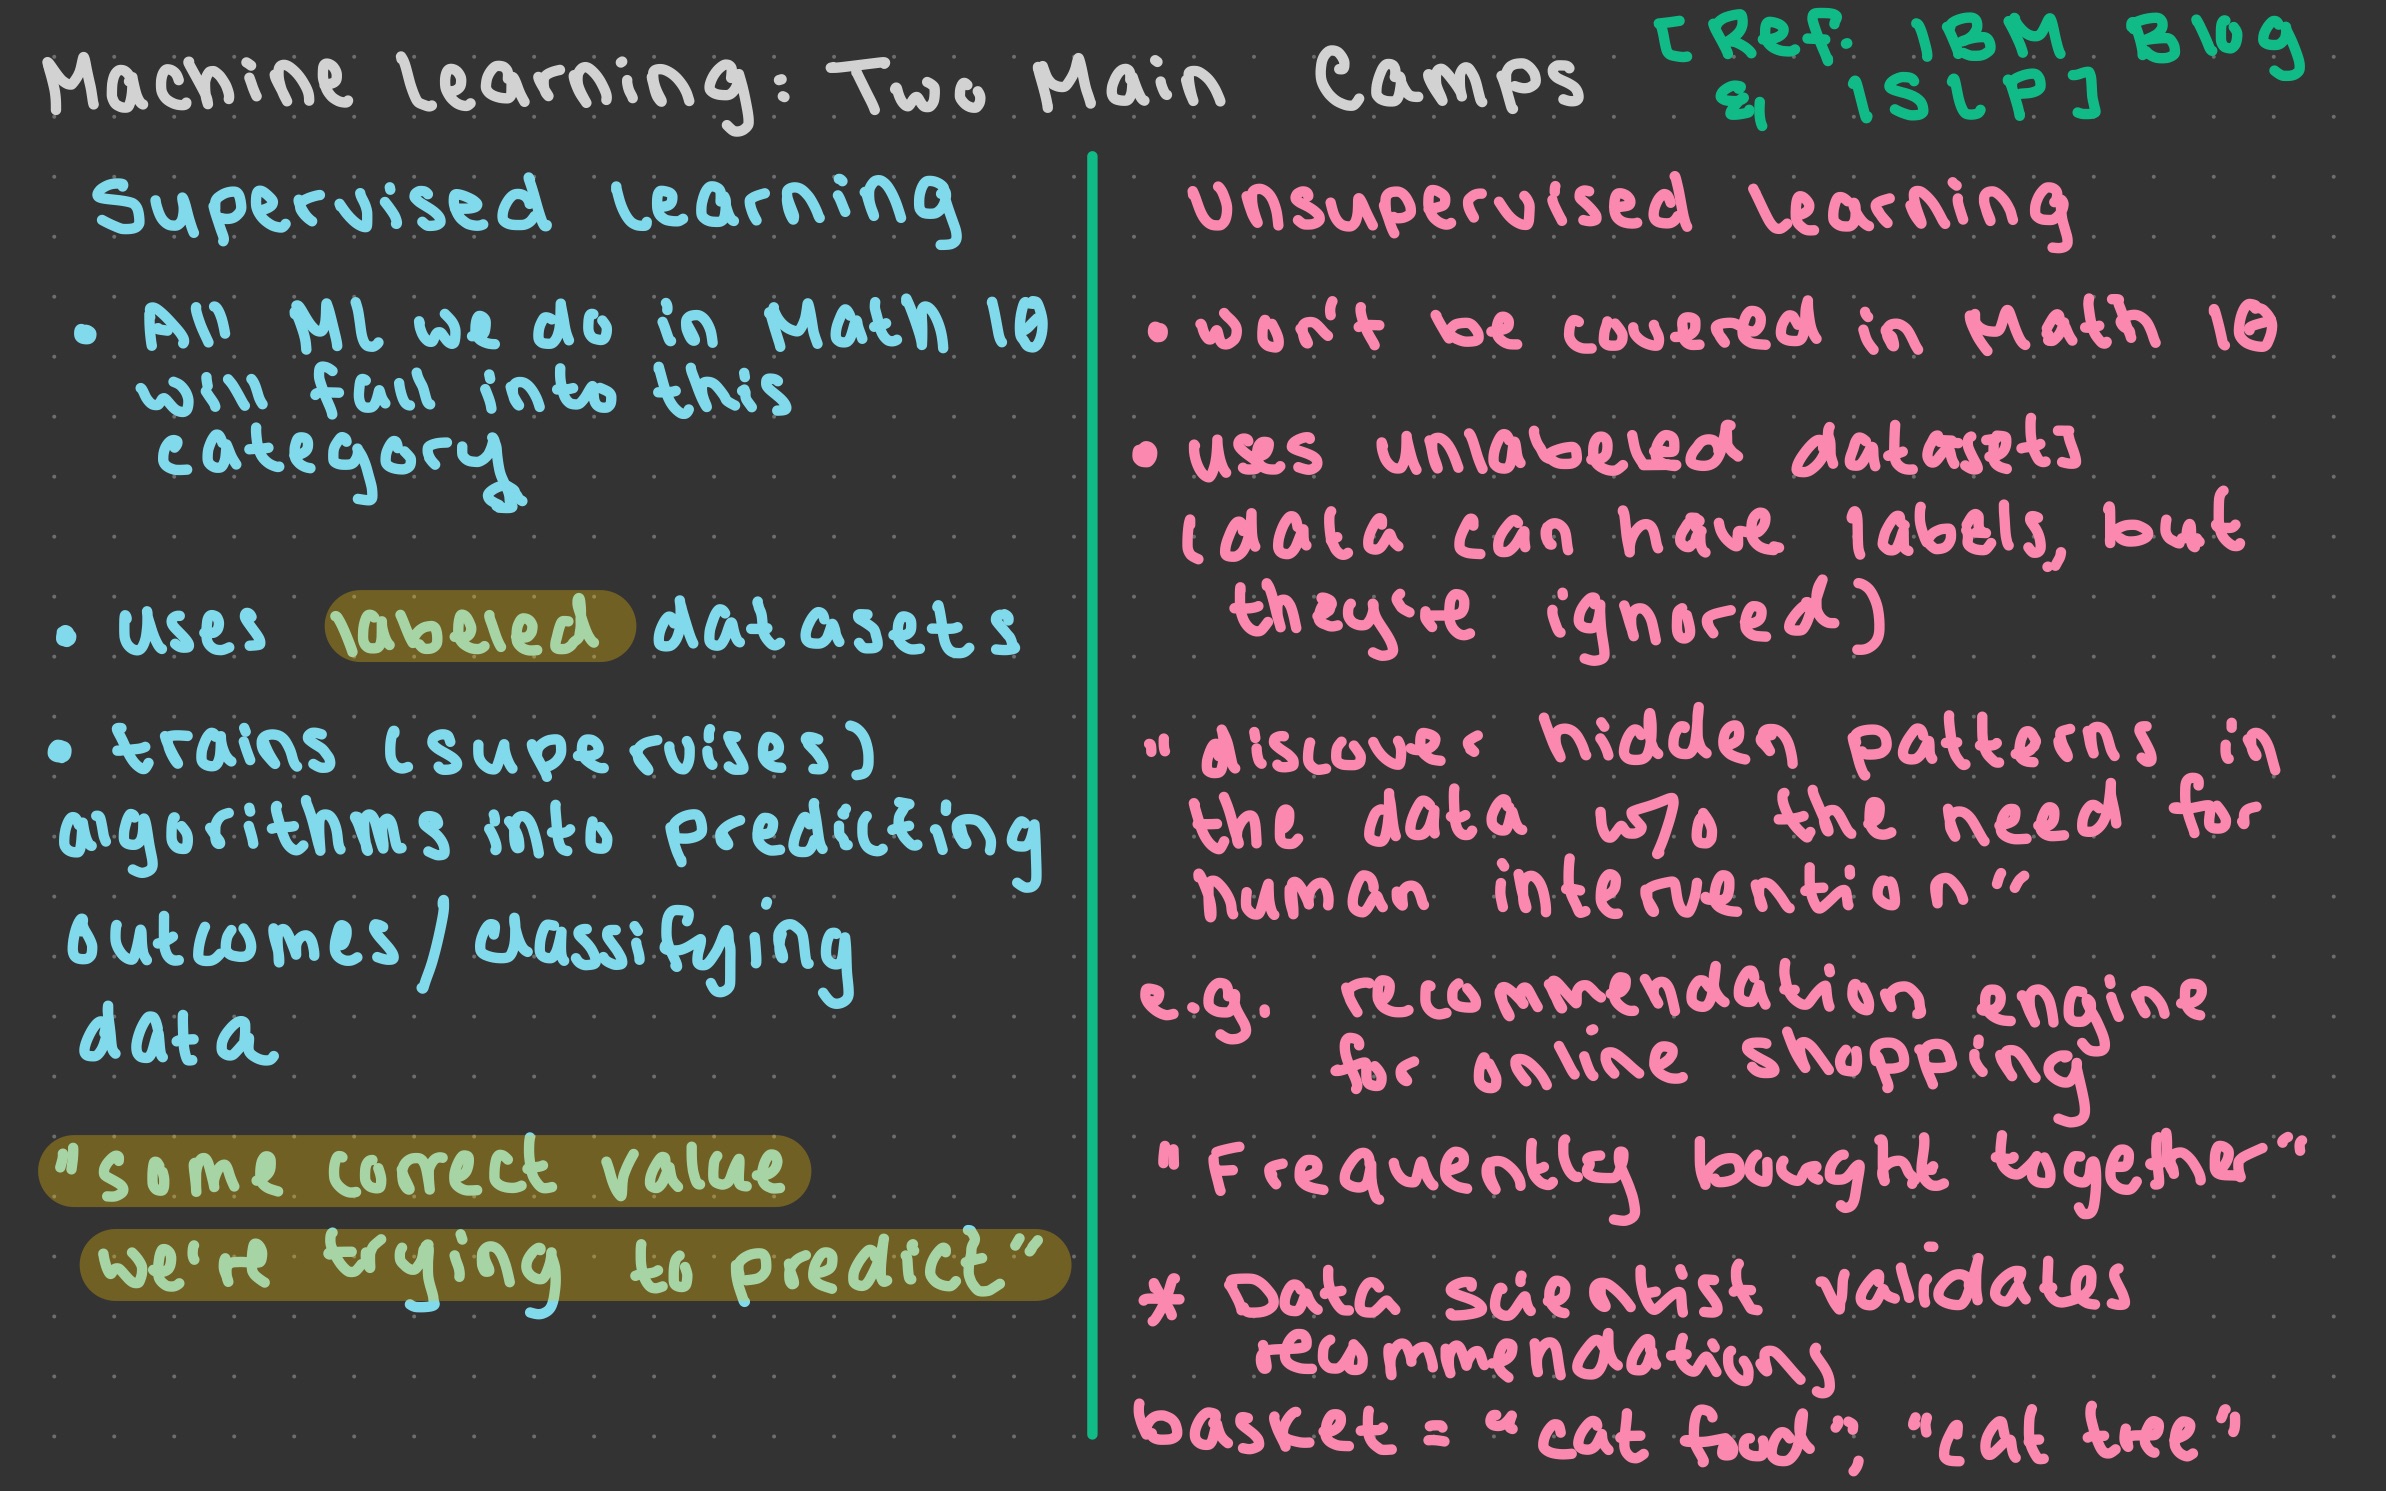 Machine learning: Two Main Camps
[Ref: IBM Blog
& ISLP]
Supervised learning
• All ML we do in Math 10
will fall into this
category
• uses labeled datasets
• trains (supervises)
algorithms into predicting
outcomes/classifying
data
"some correct value
we're trying to predict"
Unsupervised learning
• won't be covered in Math 10
• uses unlabeled datasets
(data can have labels, but
they're ignored)
" discover hidden patterns in
the data w/o the need for
human intervention"
e.g. recommendation engine
for online shopping
"Frequently bought together"
* Data scientist validates
recommendations
basket = "cat food", "cat tree"